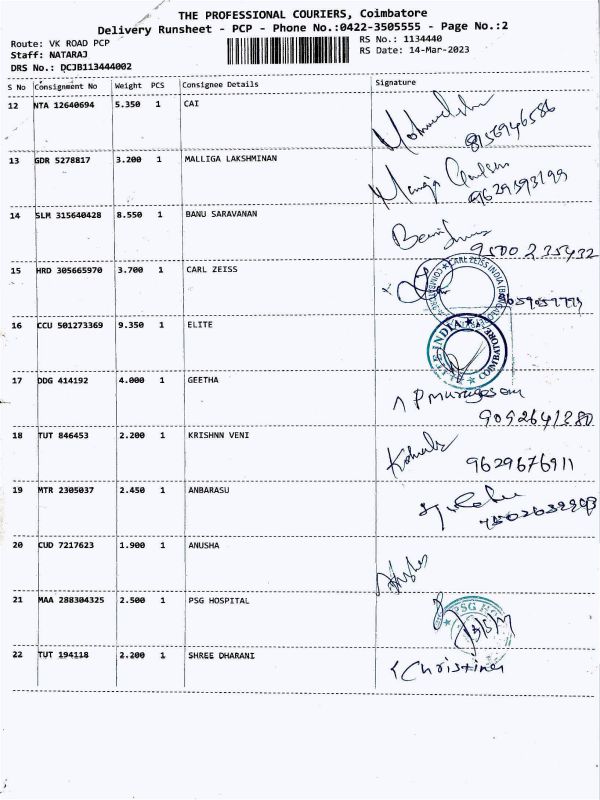 THE PROFESSIONAL COURIERS, Coimbatore
Delivery Runsheet - PCP - Phone No.:0422-3505555 - Page No.:2
Route: VK ROAD PCP
RS No.: 1134440
Staff: NATARAJ
RS Date: 14-Mar-2023
DRS No.: DCJB113444002
S No Consignment No Weight PCS Consignee Details Signature
12 NTA 12640694 5.350 1 CAI
8156946586
13 GDR 5278817 3.200 1 MALLIGA LAKSHMINAN
9629593199
14 SLM 315640428 8.550 1 BANU SARAVANAN
9500235432
15 HRD 305665970 3.700 1 CARL ZEISS
CARL ZEISS INDIA
16 CCU 501273369 9.350 1 ELITE
ELITE INDIA COIMBATORE
17 DDG 414192 4.000 1 GEETHA
P murugesan
9092641380
18 TUT 846453 2.200 1 KRISHNN VENI
9629676911
19 MTR 2305037 2.450 1 ANBARASU
20 CUD 7217623 1.900 1 ANUSHA
21 MAA 288304325 2.500 1 PSG HOSPITAL
PSG
22 TUT 194118 2.200 1 SHREE DHARANI
Christina